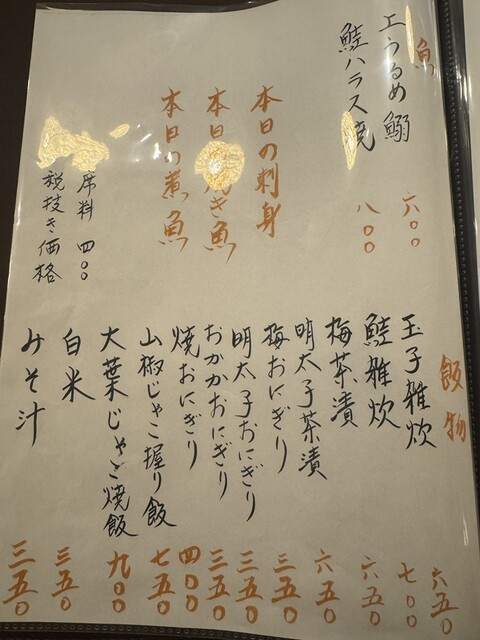 魚
上うるめ鰯 六〇〇
鮭ハラス焼 八〇〇
本日の刺身
本日の焼き魚
本日の煮魚
席料 四〇〇
税抜き価格
飯物
玉子雑炊 六五〇
鮭雑炊 七〇〇
梅茶漬 六五〇
明太子茶漬 六五〇
梅おにぎり 三五〇
明太子おにぎり 三五〇
おかかおにぎり 三五〇
焼おにぎり 四〇〇
山椒じゃこ握り飯 七五〇
大葉じゃこ焼飯 九〇〇
白米 三五〇
みそ汁 三五〇